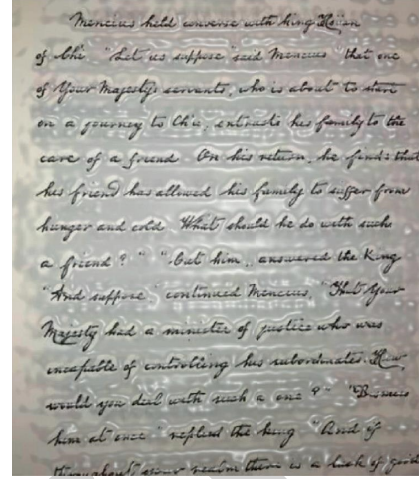 Mencius held converse with king Hsüan
of Ch'i "Let us suppose" said Mencius "that one
of Your Majesty's servants, who is about to start
on a journey to Ch'u, entrusts his family to the
care of a friend On his return, he finds that
his friend has allowed his family to suffer from
hunger and cold What should he do with such
a friend?" "Cut him", answered the King
"And suppose" continued Mencius, "that Your
Majesty had a minister of justice who was
incapable of controlling his subordinates. How
would you deal with such a one?" "Dismiss
him at once" replied the king "And if
throughout your realm there is a lack of good